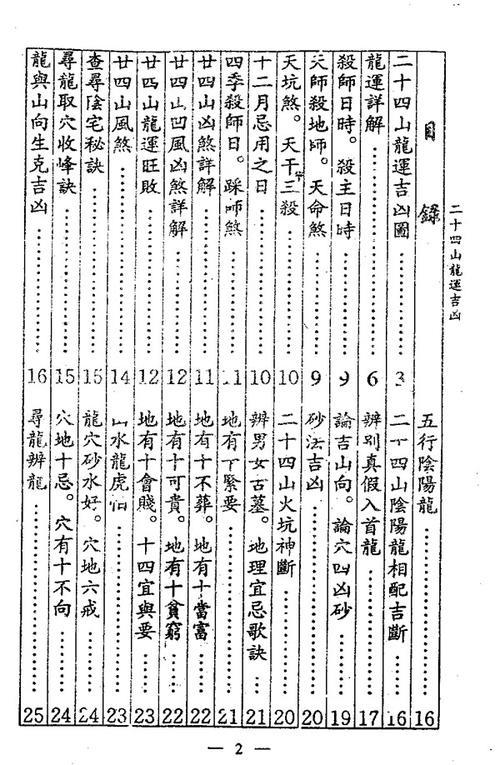 二十四山龍運吉凶
目錄
二十四山龍運吉凶圖……………3
龍運詳解……………6
殺師日時。殺主日時……………9
天師殺地師。天命煞……………9
天坑煞。天干三殺……………10
十二月忌用之日……………10
四季殺師日。踩師煞……………11
廿四山凶煞詳解……………11
廿四山凹風凶煞詳解……………12
廿四山龍運旺敗……………12
廿四山風煞……………14
查尋陰宅秘訣……………15
尋龍取穴收峰訣……………15
龍與山向生克吉凶……………16
五行陰陽龍……………16
二十四山陰陽龍相配吉斷……………16
辨別真假入首龍……………17
論吉山向。論穴凶凶砂……………19
砂法吉凶……………20
二十四山火坑神斷……………20
辨男女古墓。地理宜忌歌訣……………21
地有十緊要……………21
地有十不葬。地有十當富……………22
地有十可貴。地有十貧窮……………22
地有十會賤。十四宜與要……………23
山水龍虎怕……………23
龍穴砂水好。穴地六戒……………24
穴地十忌。穴有十不向……………24
尋龍辨龍……………25
— 2 —